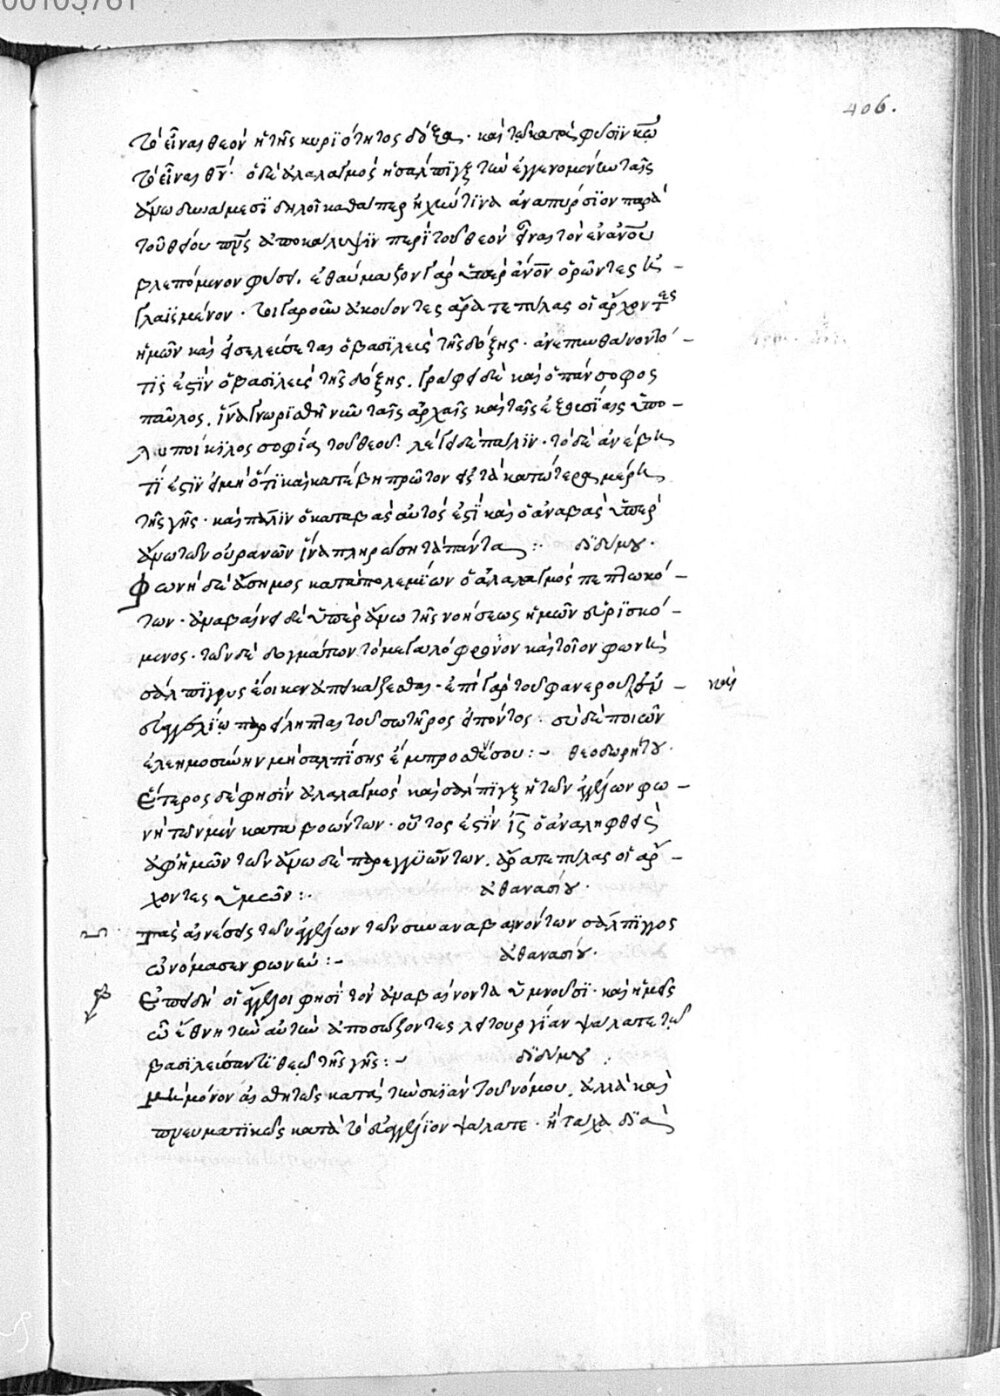 00105761
406.
τὸ εἶναι θεὸν ἡ τῆς κυριότητος δόξα· καὶ τῶ κατὰ φύσϊν
τὸ εἶναι θν̅· ὁ δὲ ἀλαλαγμὸς ἡ σάλπϊγξ τῶν ἐγγενομένων ταῖς
ἄνω δυνάμεσϊ δηλοῖ καθάπερ ἠχώ τϊνα ἀναπύρσϊον παρὰ
τοῦ πρς ἀποκάλυψϊν περὶ τοῦ θεὸν εἶναι τὸν ἐν
βλεπόμενον φύσει. ἐθαύμαζον γὰρ ὑπὲρ ἄνον ὁρῶντες
τοιγαροῦν ἀκούοντες ἄρατε πύλας οἱ ἄρχοντες
ἡμῶν καὶ εἰσελεύσεται ὁ βασϊλεὺς τῆς δόξης· ἀνεπυνθάνοντο
τίς ἐστϊν ὁ βασϊλεὺς τῆς δόξης. γράφει δὲ καὶ ὁ πάνσοφος
παῦλος. ἵνα γνωρϊσθῆ νῦν ταῖς ἀρχαῖς καὶ ταῖς ἐξουσίαις ἡ πο-
λυποίκϊλος σοφία τοῦ θεοῦ· λέγει δὲ πάλϊν· τὸ δὲ ἀνέβη
τί ἐστϊν εἰ μὴ ὅτϊ καὶ κατέβη πρῶτον εἰς τὰ κατώτερα μέρη
τῆς γῆς· καὶ πάλϊν ὁ καταβὰς αὐτός ἐστϊ καὶ ὁ ἀναβὰς ὑπὲρ
ἄνω τῶν οὐρανῶν ἵνα πληρώση τὰ πάντα :· δϊδύμου·
Φωνὴ δὲ ἄσημος κατὰ πολεμίων ὁ ἀλαλαγμὸς πεπτωκό-
των· ἀναβαίνει δὲ ὑπὲρ ἄνω τῆς νοήσεως ἡμῶν εὑρϊσκό-
μενος· τῶν δὲ δογμάτων τὸ μεγαλόφρονον καὶ τοῖον φωνῆ
σάλπϊγγος ἔοικεν ἀπεικάζεσθαι· ἐπὶ γὰρ τοῦ φανεροῦ
εὐαγγελίω παρείληπται τοῦ σωτῆρος εἰπόντος· σὺ δὲ ποιῶν
ἐλεημοσύνην μὴ σαλπίσης ἔμπροσθέν σου :- θεοδωρήτου·
Ἕτερος δέ φησϊν ἀλαλαγμὸς καὶ σάλπϊγξ ἡ τῶν ἀγγέλων φω-
νὴ τῶν μὲν καταβοώντων· οὗτος ἐστϊν ις̅ ὁ ἀναληφθεὶς
ἀφ' ἡμῶν τῶν ἄνω δὲ παρεγγυώντων. ἄρατε πύλας οἱ ἄρ-
χοντες ὑμῶν :· ἀθανασίου·
Τὰς αἰνέσεις τῶν ἀγγέλων τῶν συναναβαινόντων σάλπϊγγος
ὠνόμασεν φωνήν :- ἀθανασίου·
Ἐπειδὴ οἱ ἄγγελοι φησϊ τὸν ἀναβαίνοντα ὑμνοῦσϊ· καὶ ἡμεῖς
ὦ ἔθνη τὴν αὐτὴν ἀποσώζοντες λειτουργίαν ψάλατε τῶ
βασϊλεύσαντϊ θεῶ τῆς γῆς :- δϊδύμου
μὴ μόνον αἰσθητῶς κατὰ τὴν σκϊὰν τοῦ νόμου. ἀλλὰ καὶ
πνευματϊκῶς κατὰ τὸ εὐαγγέλϊον ψάλατε· ἢ τάχα δϊὰ